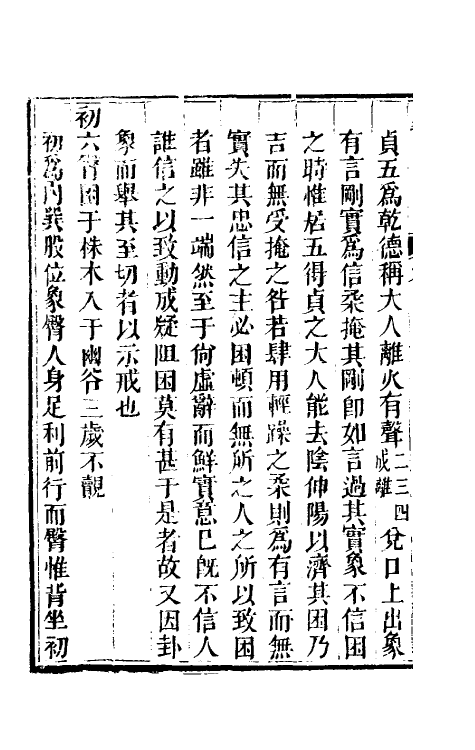 貞五爲乾德稱大人離火有聲二三四成離兌口上出象
有言剛實爲信柔掩其剛卽如言過其實象不信困
之時惟居五得貞之大人能去陰伸陽以濟其困乃
吉而無受掩之咎若肆用輕躁之柔則爲有言而無
實失其忠信之主必困頓而無所之人之所以致困
者雖非一端然至于尙虛辭而鮮實意已旣不信人
誰信之以致動成疑阻困莫有甚于是者故又因卦
象而舉其至切者以示戒也
初六臀困于株木入于幽谷三歲不覿
初爲內巽股位象臀人身足利前行而臀惟背坐初